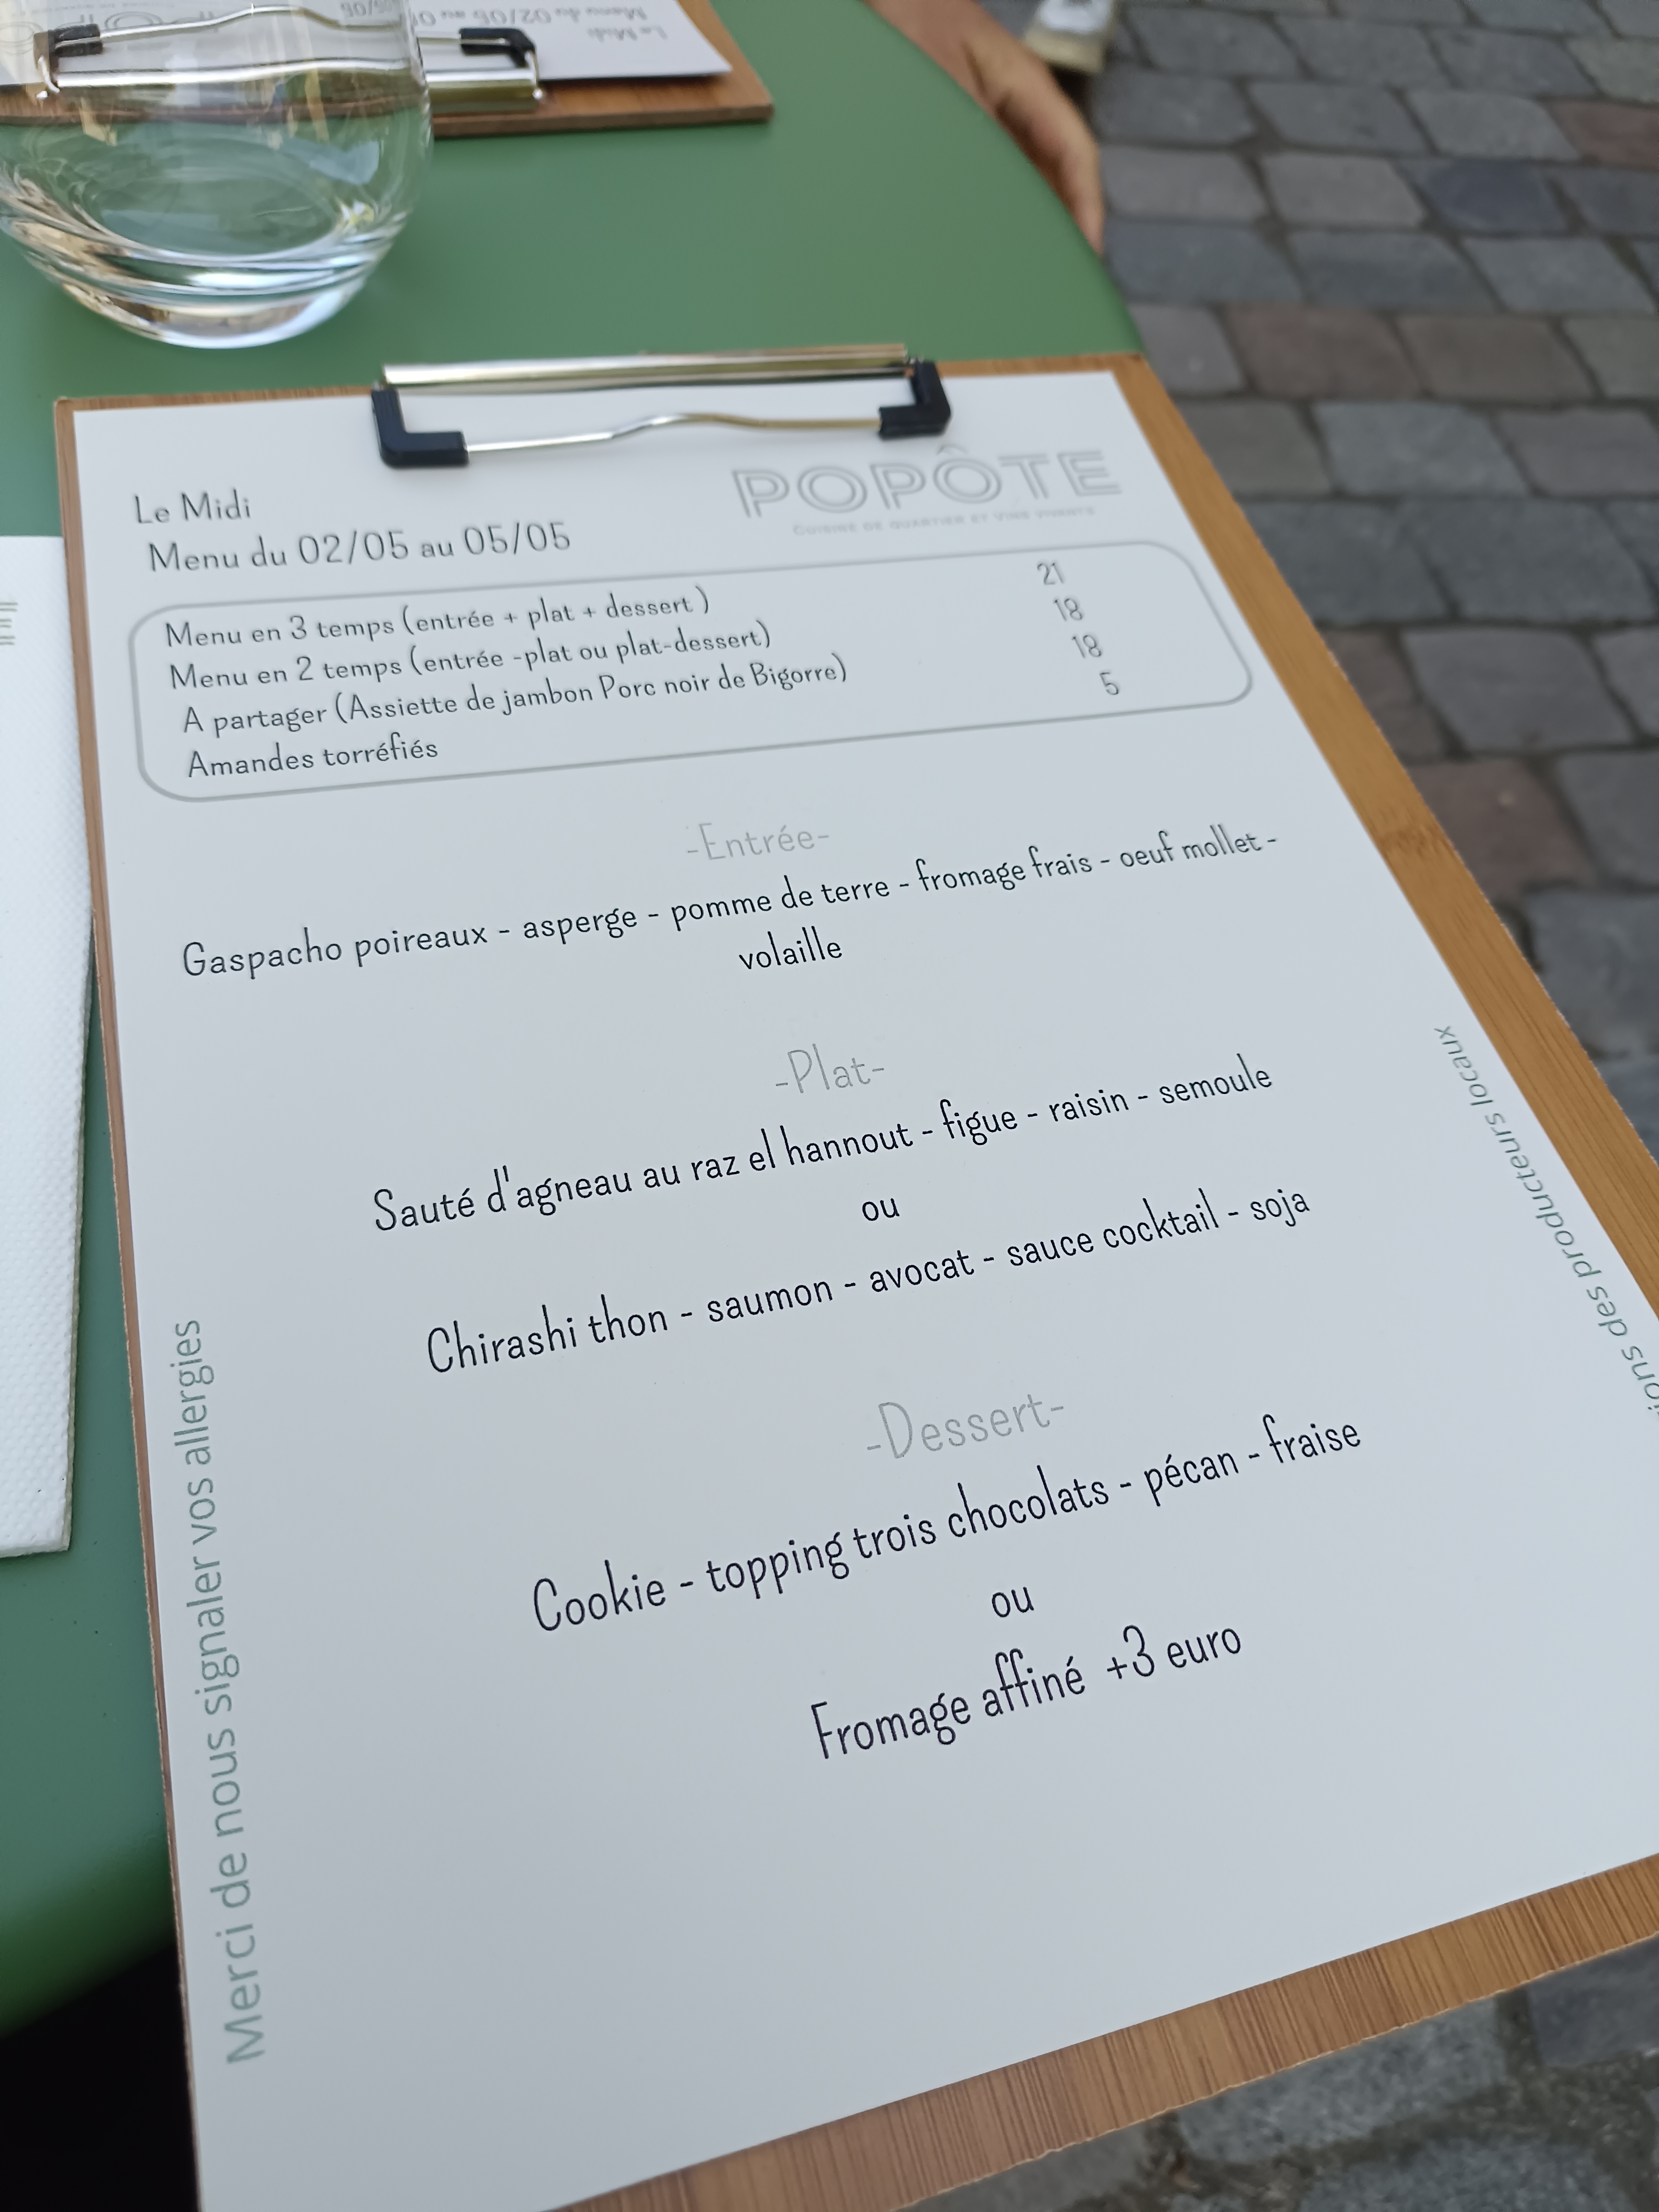 Le Midi
Menu du 02/05 au 05/05
POPÔTE
CUISINE DE QUARTIER ET VINS VIVANTS
Menu en 3 temps (entrée + plat + dessert ) 21
Menu en 2 temps (entrée -plat ou plat-dessert) 18
A partager (Assiette de jambon Porc noir de Bigorre) 18
Amandes torréfiés 5
-Entrée-
Gaspacho poireaux - asperge - pomme de terre - fromage frais - oeuf mollet -
volaille
-Plat-
Sauté d'agneau au raz el hannout - figue - raisin - semoule
ou
Chirashi thon - saumon - avocat - sauce cocktail - soja
-Dessert-
Cookie - topping trois chocolats - pécan - fraise
ou
Fromage affiné +3 euro
Merci de nous signaler vos allergies
des producteurs locaux
Le Midi
Menu du 02/05 au